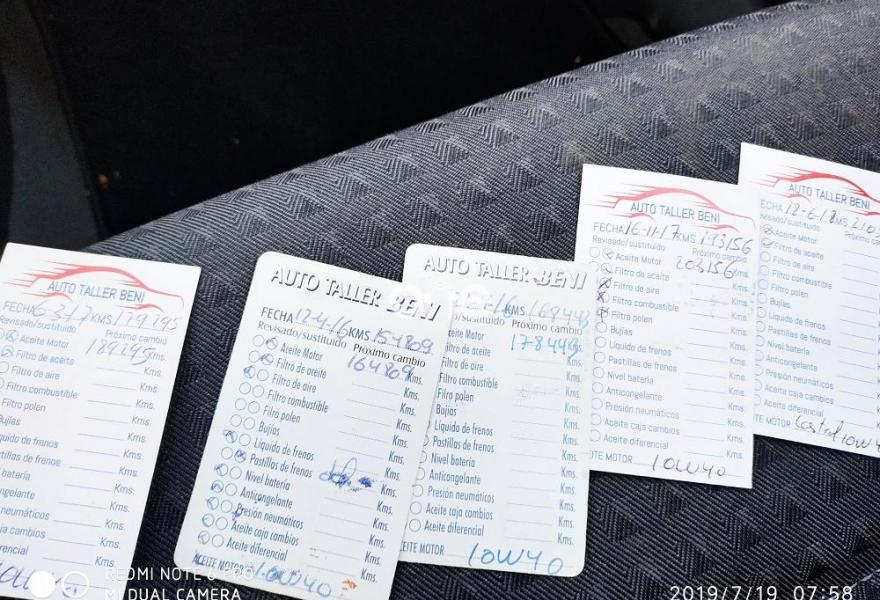 AUTO TALLER BENI
FECHA 6-3-17 KMS 179295
Revisado/sustituido Próximo cambio
Aceite Motor 189295 Kms.
Filtro de aceite Kms.
Filtro de aire Kms.
Filtro combustible Kms.
Filtro polen Kms.
Bujías Kms.
quido de frenos Kms.
stillas de frenos Kms.
batería Kms.
ongelante Kms.
n neumáticos Kms.
ja cambios Kms.
rencial Kms.
AUTO TALLER BENI
FECHA 12-4-16 KMS 154809
Revisado/sustituido Próximo cambio
Aceite Motor 164809 Kms.
Filtro de aceite Kms.
Filtro de aire Kms.
Filtro combustible Kms.
Filtro polen Kms.
Bujías Kms.
Líquido de frenos Kms.
Pastillas de frenos Kms.
Nivel batería Kms.
Anticongelante Kms.
Presión neumáticos Kms.
Aceite caja cambios Kms.
Aceite diferencial Kms.
ACEITE MOTOR 10W40
AUTO TALLER BENI
16 KMS 168443
/sustituido Próximo cambio
178443 Kms.
de aceite Kms.
de aire Kms.
combustible Kms.
polen Kms.
Bujías Kms.
Líquido de frenos Kms.
Pastillas de frenos Kms.
Nivel batería Kms.
Anticongelante Kms.
Presión neumáticos Kms.
Aceite caja cambios Kms.
Aceite diferencial Kms.
CEITE MOTOR 10W40
AUTO TALLER BENI
FECHA 16-11-17 KMS 193156
Revisado/sustituido Próximo cambio
Aceite Motor 203156 Kms.
Filtro de aceite Kms.
Filtro de aire Kms.
Filtro combustible Kms.
Filtro polen Kms.
Bujías Kms.
Líquido de frenos Kms.
Pastillas de frenos Kms.
Nivel batería Kms.
Anticongelante Kms.
Presión neumáticos Kms.
Aceite caja cambios Kms.
Aceite diferencial Kms.
ITE MOTOR 10W40
AUTO TALLER BENI
ECHA 12-6-18 MS
visado/sustituido Próximo ca
Aceite Motor
Filtro de aceite
Filtro de aire
Filtro combustible
Filtro polen
Bujías
Líquido de frenos
Pastillas de frenos
Nivel batería
Anticongelante
Presión neumáticos
Aceite caja cambios
Aceite diferencial
TE MOTOR Castrol 10W4
REDMI NOTE 6 PRO
MI DUAL CAMERA
2019/7/19 07:58